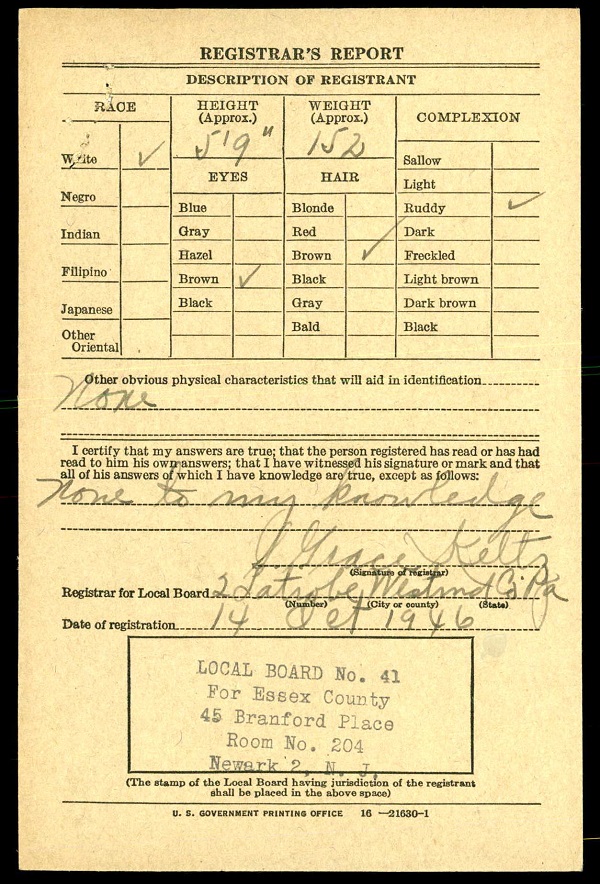 REGISTRAR'S REPORT
DESCRIPTION OF REGISTRANT
RACE
HEIGHT
(Approx.)
WEIGHT
(Approx.)
COMPLEXION
5'9"
152
White ✓
Negro
Indian
Filipino
Japanese
Other
Oriental
EYES
Blue
Gray
Hazel
Brown ✓
Black
HAIR
Blonde
Red
Brown ✓
Black
Gray
Bald
Sallow
Light
Ruddy ✓
Dark
Freckled
Light brown
Dark brown
Black
Other obvious physical characteristics that will aid in identification
None
I certify that my answers are true; that the person registered has read or has had
read to him his own answers; that I have witnessed his signature or mark and that
all of his answers of which I have knowledge are true, except as follows:
None to my knowledge
Grace Keltz
(Signature of registrar)
Registrar for Local Board 2 Latrobe Westmd Co Pa
(Number) (City or county) (State)
Date of registration 14 Oct 1946
LOCAL BOARD No. 41
For Essex County
45 Branford Place
Room No. 204
Newark 2, N. J.
(The stamp of the Local Board having jurisdiction of the registrant
shall be placed in the above space)
U. S. GOVERNMENT PRINTING OFFICE 16—21630-1